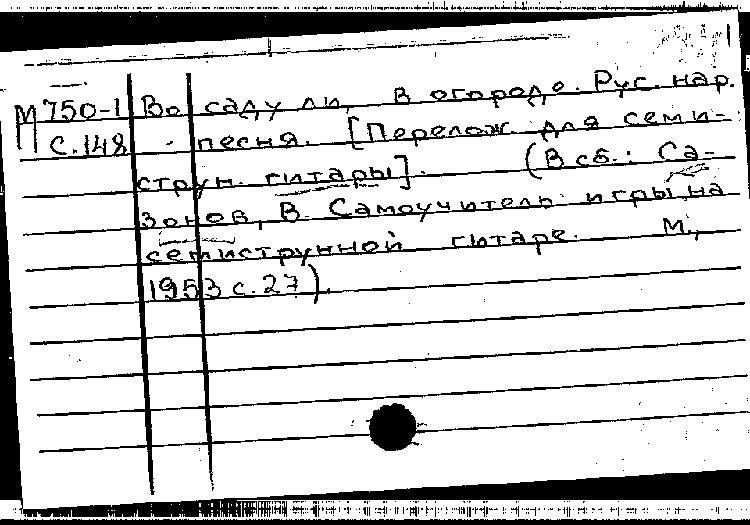 М 750-1 Во саду ли, в огороде. Рус. нар.
с. 148 - песня. [Перелож. для семи-
струн. гитары]. (В сб.: Са-
зонов, В. Самоучитель игры на
семиструнной гитаре. М.,
1953 с. 27).